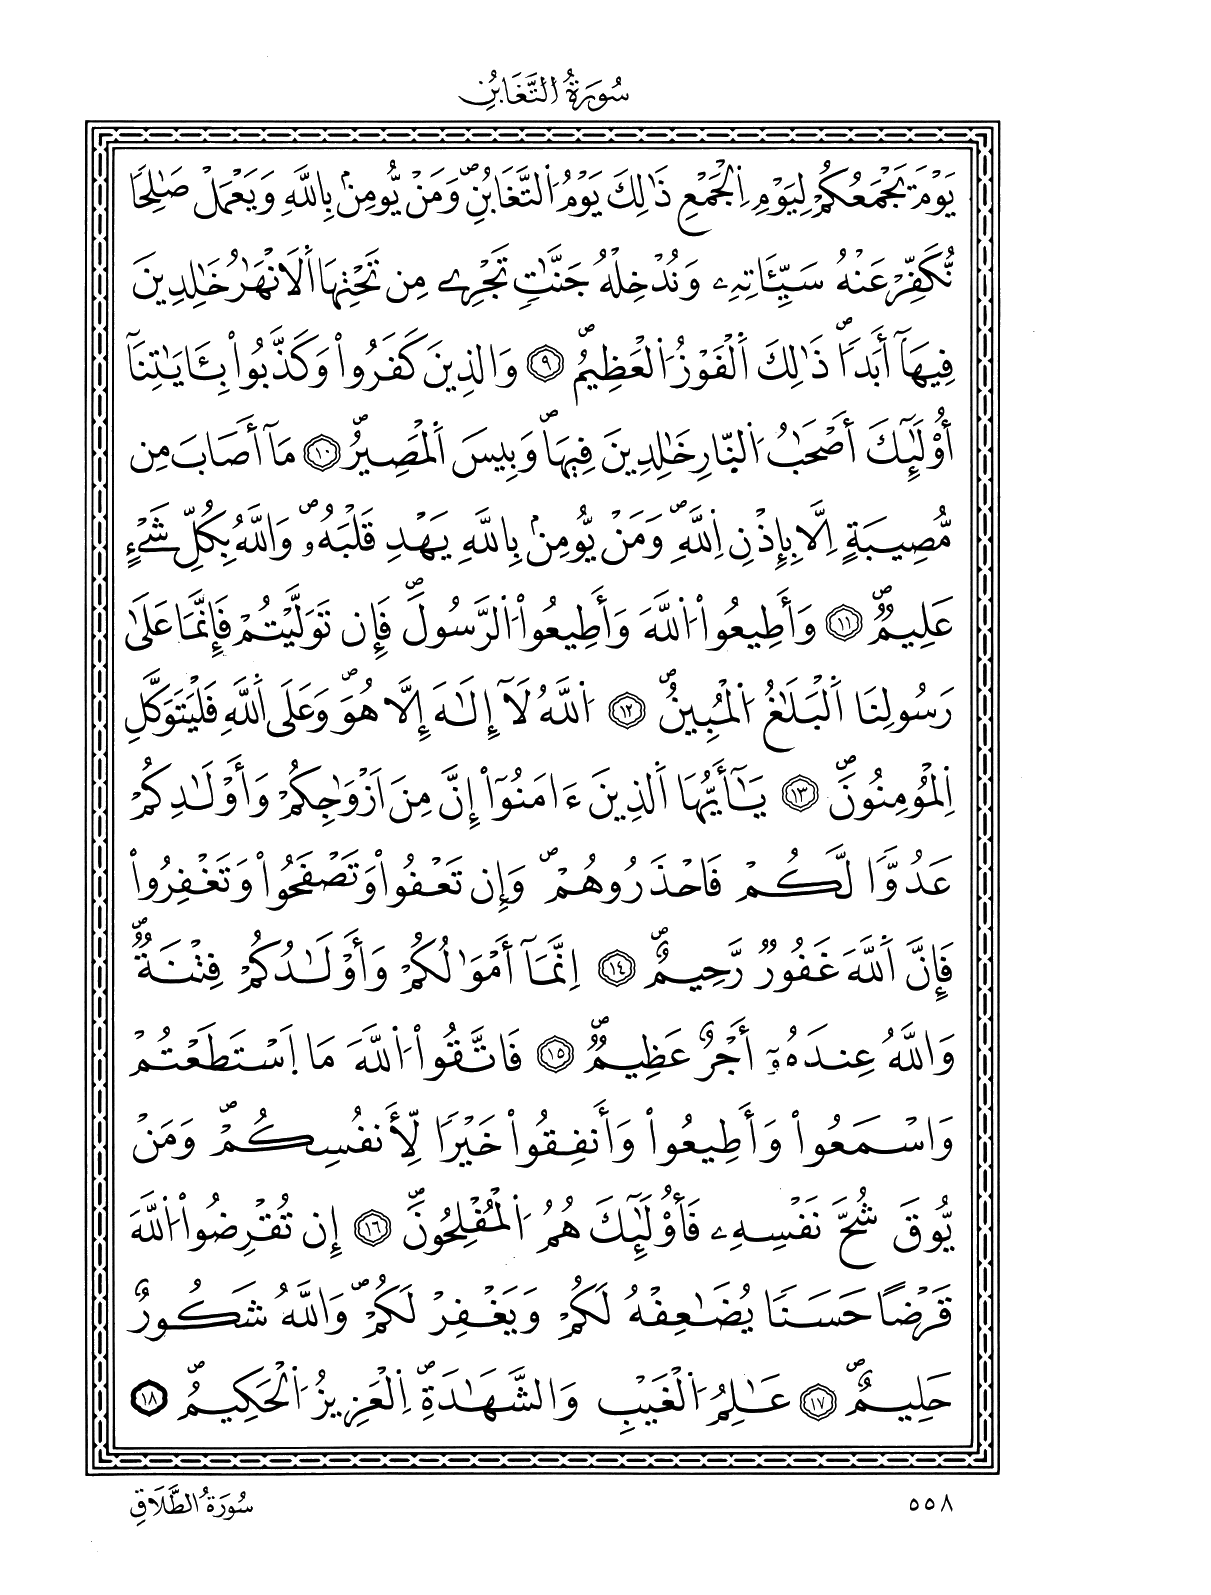 سُورَةُ التَّغَابُنِ
يَوْمَ يَجْمَعُكُمْ لِيَوْمِ اِ۬لْجَمْعِ ذَٰلِكَ يَوْمُ اُ۬لتَّغَابُنِۖ وَمَنْ يُّومِنۢ بِاللَّهِ وَيَعْمَلْ صَٰلِحاٗ
نُّكَفِّرْ عَنْهُ سَيِّـَٔاتِهِۦ وَنُدْخِلْهُ جَنَّٰتٖ تَجْرِے مِن تَحْتِهَا اَ۬لَانْهَٰرُ خَٰلِدِينَ
فِيهَآ أَبَداٗۖ ذَٰلِكَ اَ۬لْفَوْزُ اُ۬لْعَظِيمُۖ ٩ وَالذِينَ كَفَرُواْ وَكَذَّبُواْ بِـَٔايَٰتِنَآ
أُوْلَٰٓئِكَ أَصْحَٰبُ اُ۬لنّ۪ارِ خَٰلِدِينَ فِيهَاۖ وَبِيسَ اَ۬لْمَصِيرُۖ ١٠ مَآ أَصَابَ مِن
مُّصِيبَةٍ اِلَّا بِإِذْنِ اِ۬للَّهِۖ وَمَنْ يُّومِنۢ بِاللَّهِ يَهْدِ قَلْبَهُۥۖ وَاللَّهُ بِكُلِّ شَےْءٍ
عَلِيمٞۖ ١١ وَأَطِيعُواْ اُ۬للَّهَ وَأَطِيعُواْ اُ۬لرَّسُولَۖ فَإِن تَوَلَّيْتُمْ فَإِنَّمَا عَلَىٰ
رَسُولِنَا اَ۬لْبَلَٰغُ اُ۬لْمُبِينُۖ ١٢ اَ۬للَّهُ لَآ إِلَٰهَ إِلَّا هُوَۖ وَعَلَى اَ۬للَّهِ فَلْيَتَوَكَّلِ
اِ۬لْمُومِنُونَۖ ١٣ يَٰٓأَيُّهَا اَ۬لذِينَ ءَامَنُوٓاْ إِنَّ مِنَ اَزْوَٰجِكُمْ وَأَوْلَٰدِكُمْ
عَدُوّاٗ لَّكُمْ فَاحْذَرُوهُمْۖ وَإِن تَعْفُواْ وَتَصْفَحُواْ وَتَغْفِرُواْ
فَإِنَّ اَ۬للَّهَ غَفُورٞ رَّحِيمٌۖ ١٤ اِنَّمَآ أَمْوَٰلُكُمْ وَأَوْلَٰدُكُمْ فِتْنَةٞۖ
وَاللَّهُ عِندَهُۥٓ أَجْرٌ عَظِيمٞۖ ١٥ فَاتَّقُواْ اُ۬للَّهَ مَا اَ۪سْتَطَعْتُمْ
وَاسْمَعُواْ وَأَطِيعُواْ وَأَنفِقُواْ خَيْراٗ لِّأَنفُسِكُمْۖ وَمَنْ
يُّوقَ شُحَّ نَفْسِهِۦ فَأُوْلَٰٓئِكَ هُمُ اُ۬لْمُفْلِحُونَۖ ١٦ إِن تُقْرِضُواْ اُ۬للَّهَ
قَرْضاً حَسَناٗ يُضَٰعِفْهُ لَكُمْ وَيَغْفِرْ لَكُمْۖ وَاللَّهُ شَكُورٌ
حَلِيمٌۖ ١٧ عَٰلِمُ اُ۬لْغَيْبِ وَالشَّهَٰدَةِۖ اِ۬لْعَزِيزُ اُ۬لْحَكِيمُۖ ١٨
٥٥٨ سُورَةُ الطَّلَاقِ